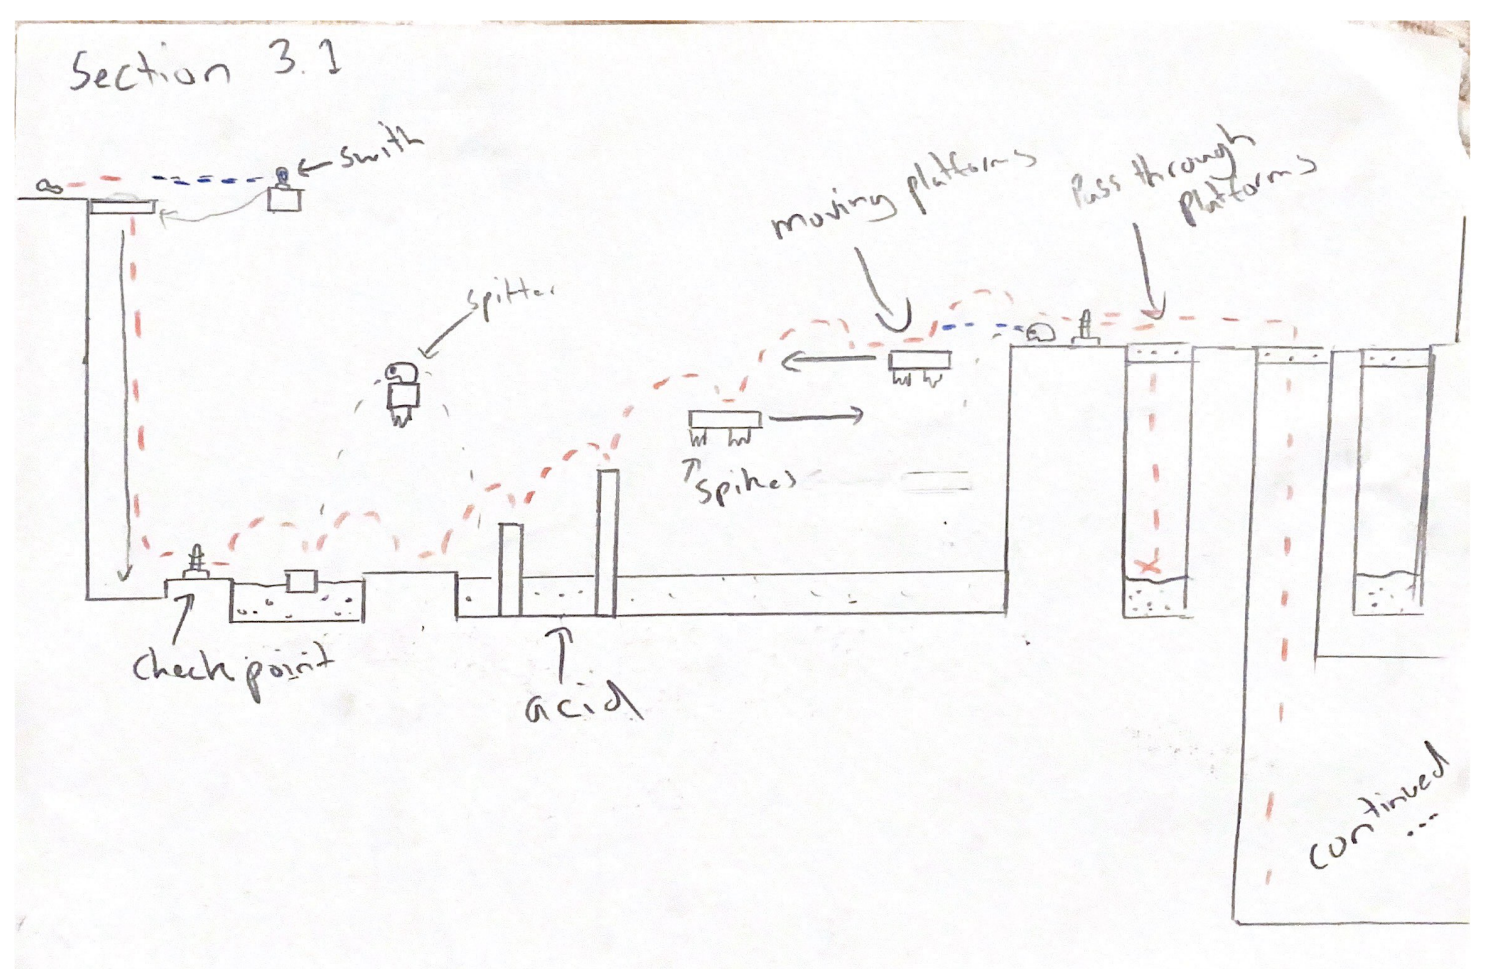 Section 3.1
swith
moving platforms
Pass through
platforms
spitter
spikes
Check point
acid
continued
...